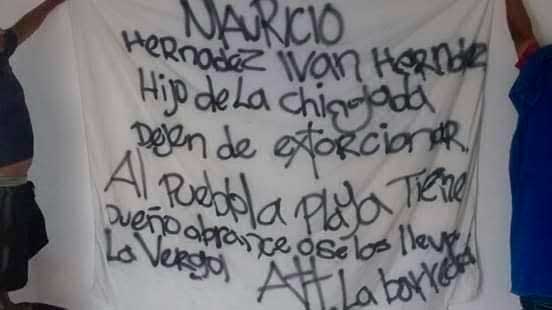 MAURICIO
HERNADEZ IVAN HERNDEZ
Hijo de La chingada
Dejen de extorcionar
Al Puebla Playa Tiene
Dueño abrance o se los lleva
La Verga Att. La barreda